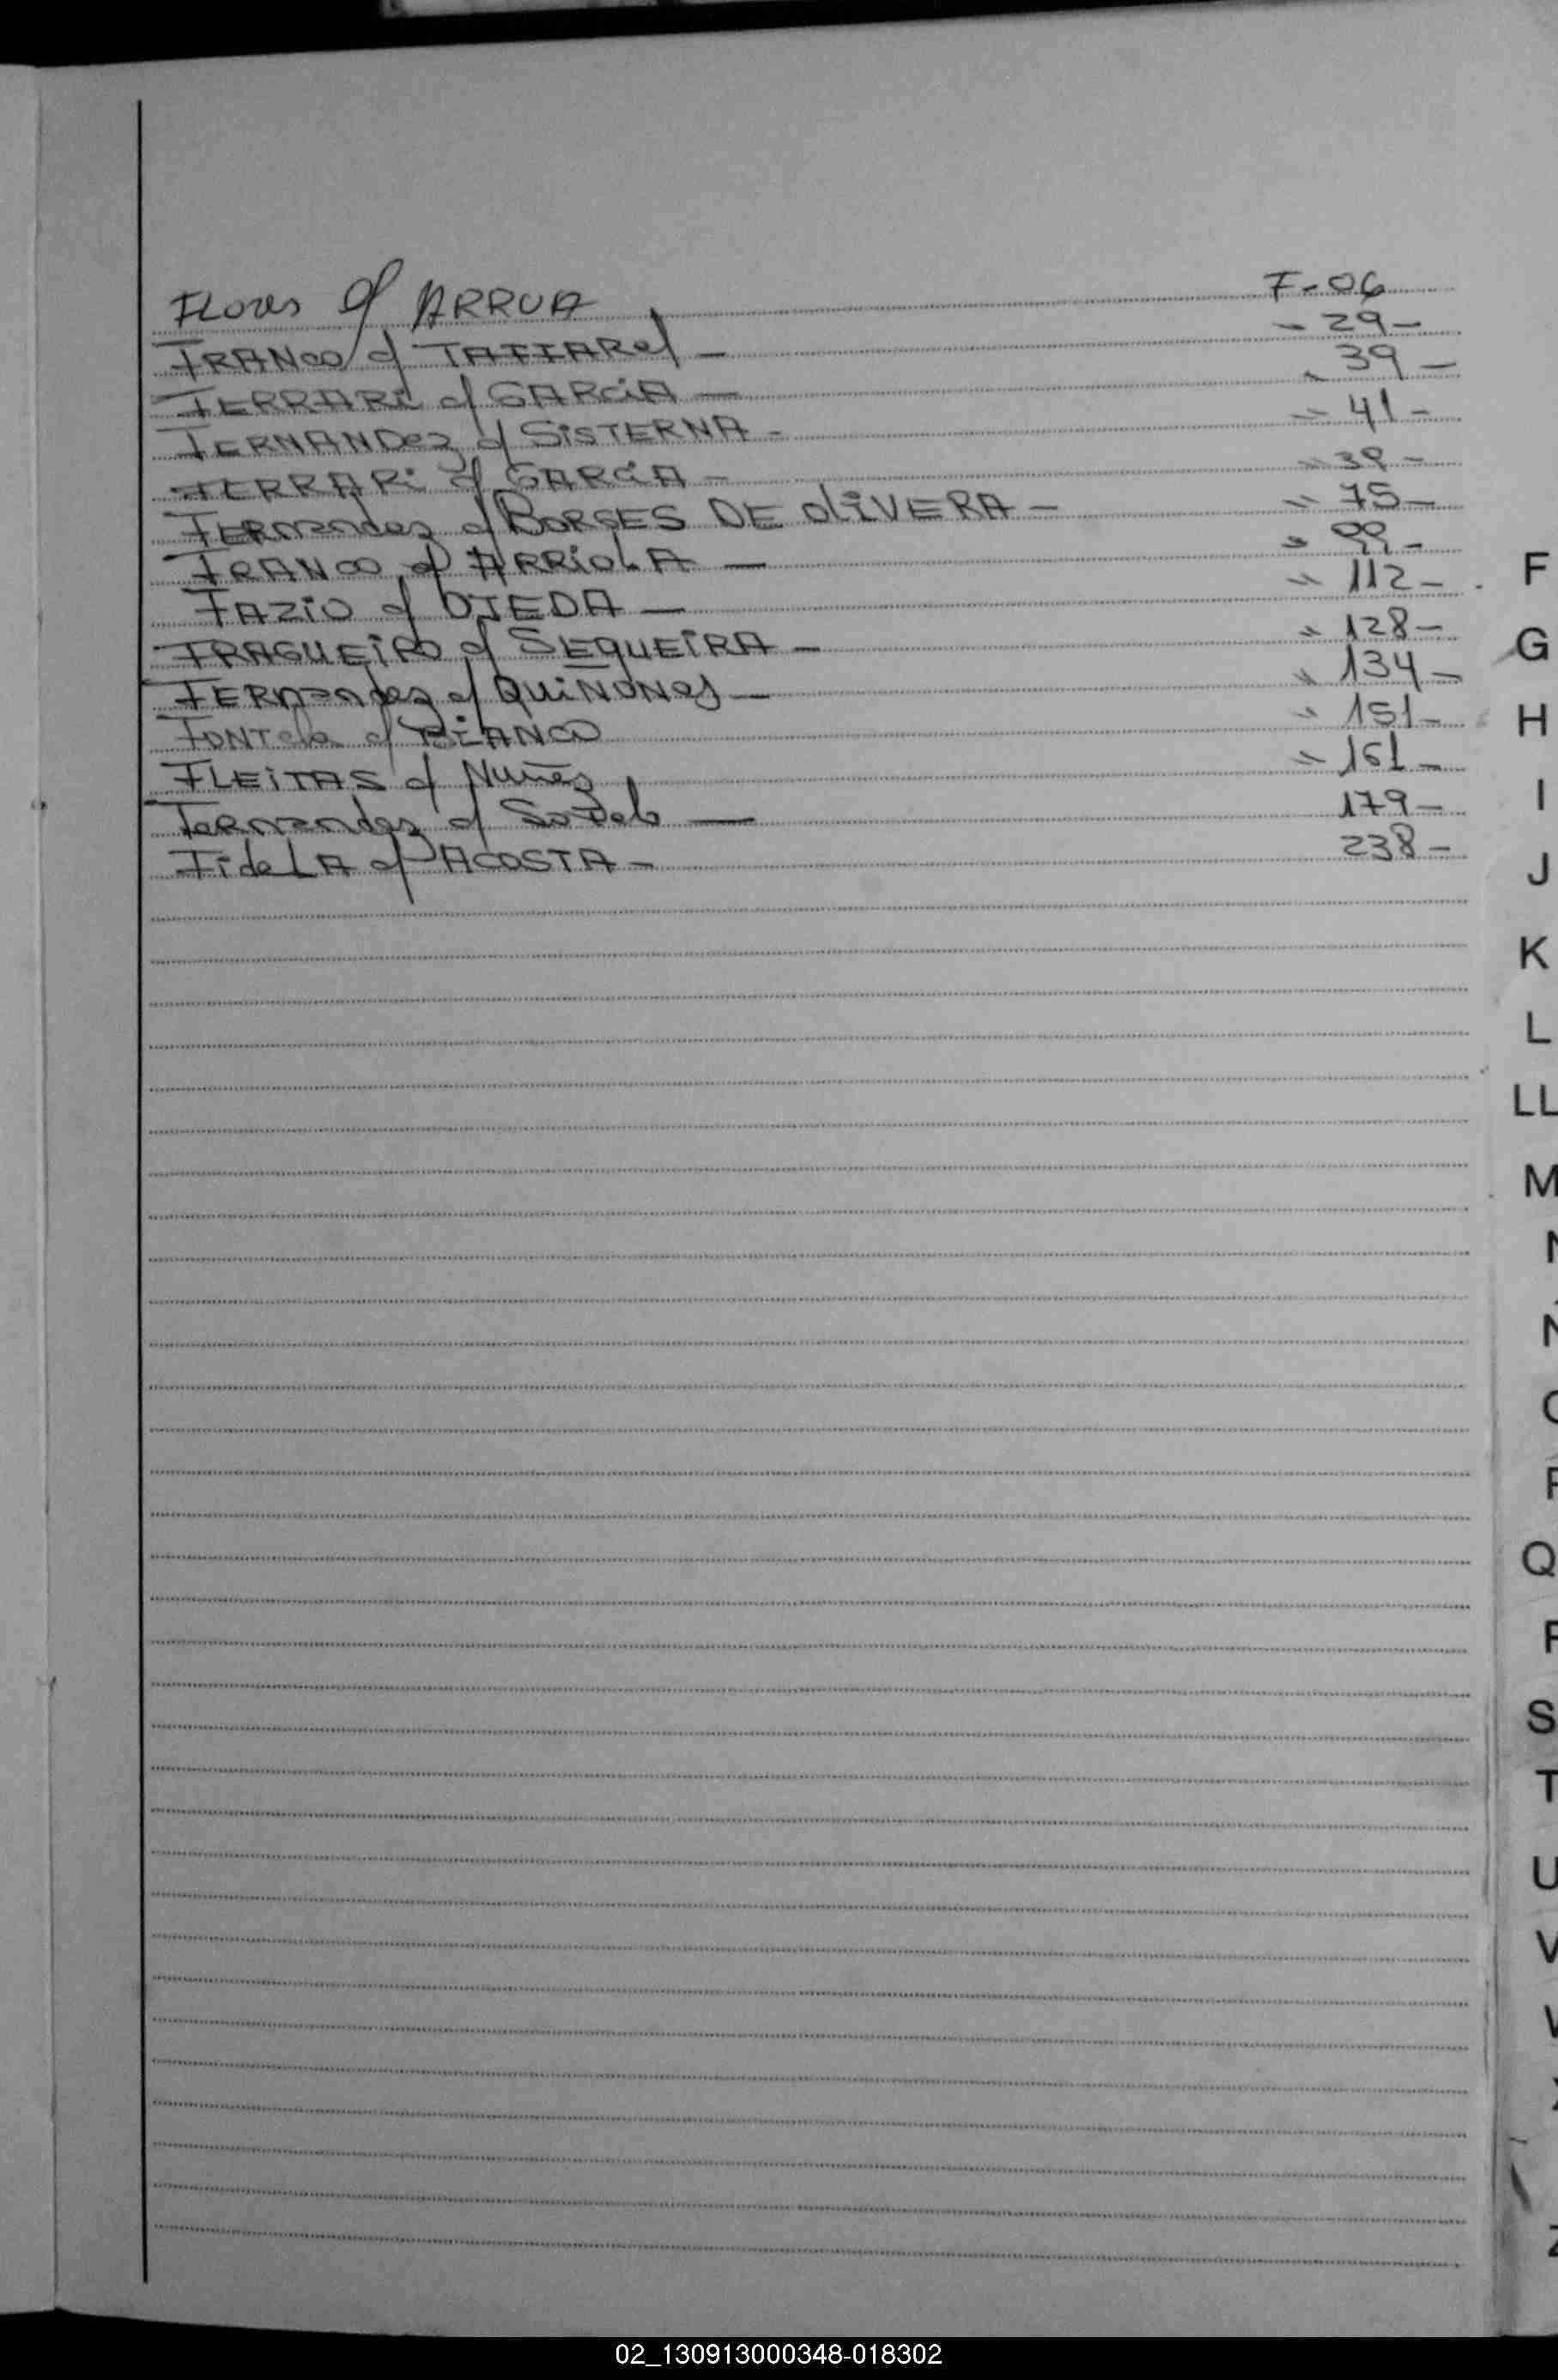 Flores c/ ARRUA F-06
FRANCO c/ TAFFAREL - " 29-
FERRARI c/ GARCIA - " 39-
FERNANDEZ c/ SISTERNA - " 41-
FERRARI c/ GARCIA - " 39-
FERNANDEZ c/ BORGES DE OLIVERA - " 75-
FRANCO c/ ARRIOLA - " 99-
FAZIO c/ OJEDA - " 112-
FRAGUEIRO c/ SEQUEIRA - " 128-
FERNANDEZ c/ QUINONES - " 134-
FONTELA c/ BIANCO " 151-
FLEITAS c/ Nuñez " 161-
Fernandez c/ Sotelo - 179-
FideLA c/ ACOSTA - 238-
F
G
H
I
J
K
L
LL
M
N
Q
S
T
U
V
Z
02_130913000348-018302